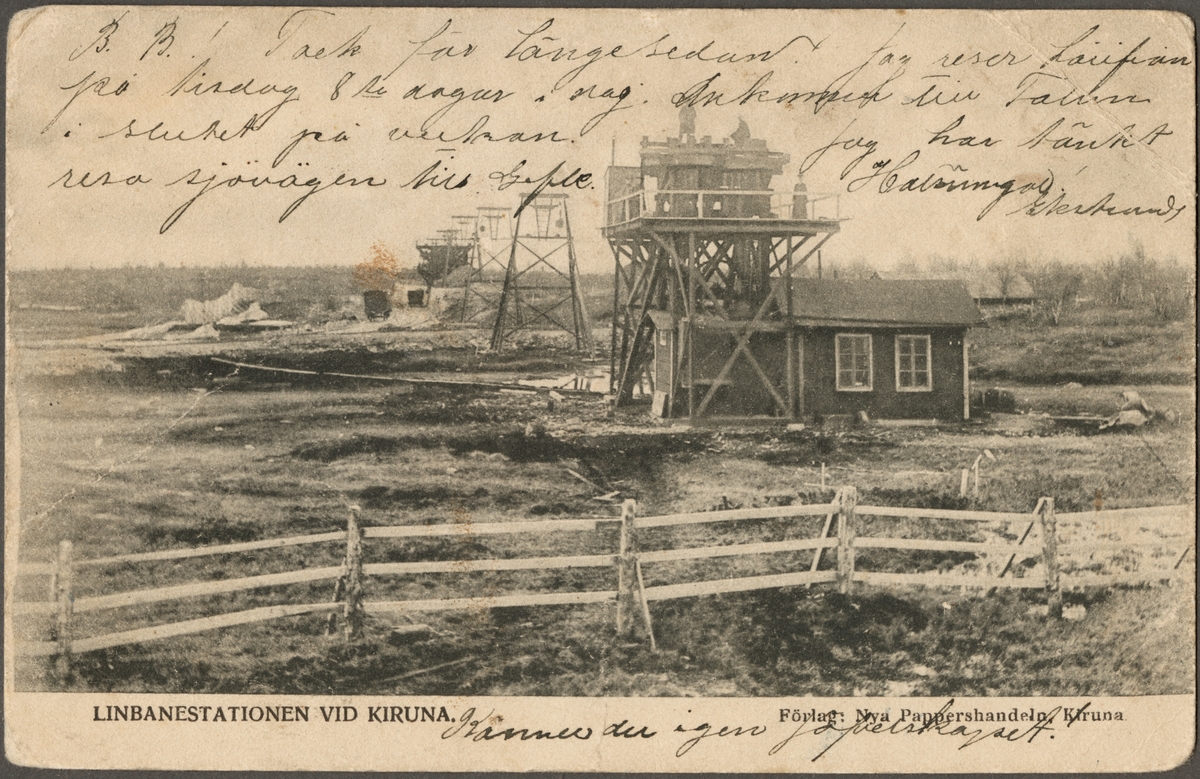 B. B.! Tack för länge sedan! Jag reser härifrån
på tisdag 8ta dagar i dag. Ankommer till Falun
i slutet på veckan. Jag har tänkt
resa sjövägen till Gefle. Hälsningar!
Ekstrand
LINBANESTATIONEN VID KIRUNA.
Förlag: Nya Pappershandeln, Kiruna
Känner du igen